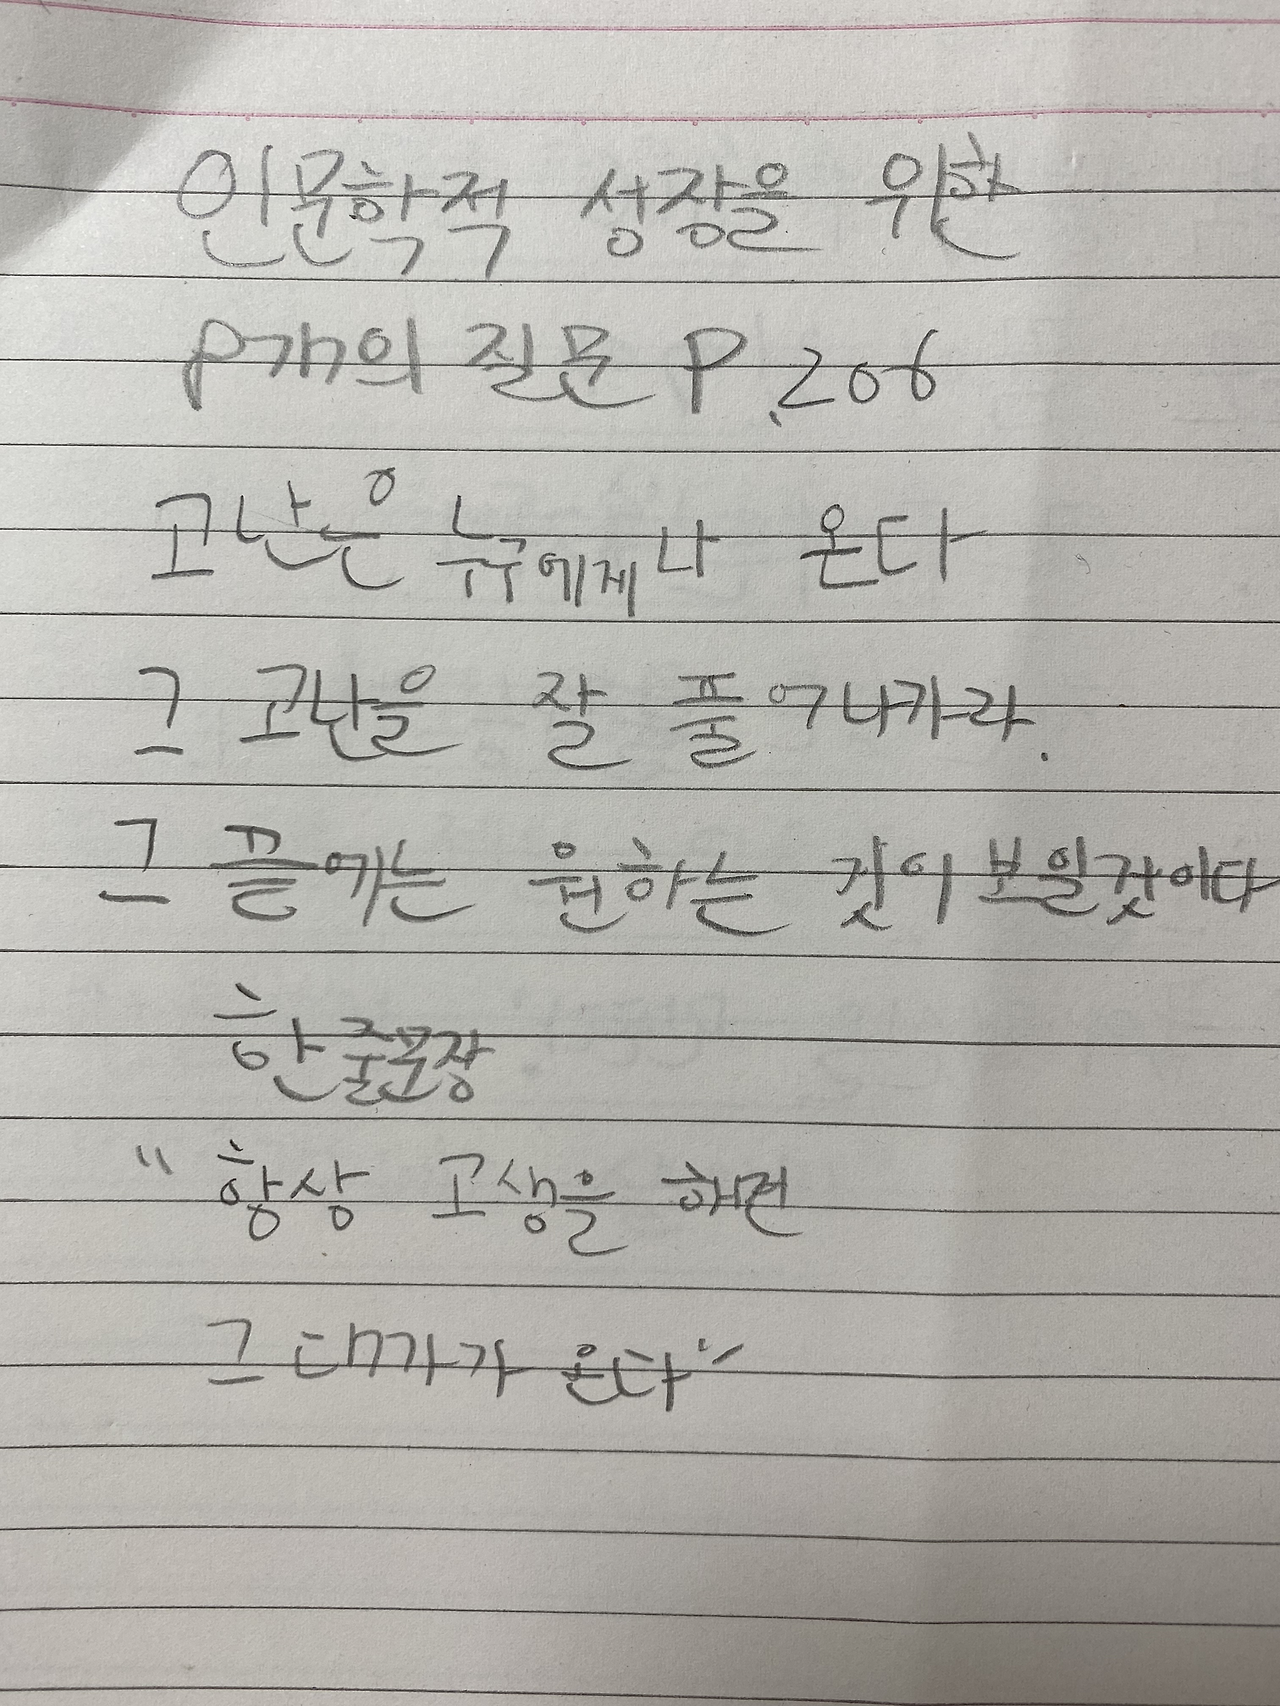 인문학적 성장을 위한
8개의 질문 P.206
고난은 누구에게나 온다
그 고난을 잘 풀어나가라.
그 끝에는 원하는 것이 보일것이다
한줄문장
"항상 고생을 하면
그 대가가 온다"